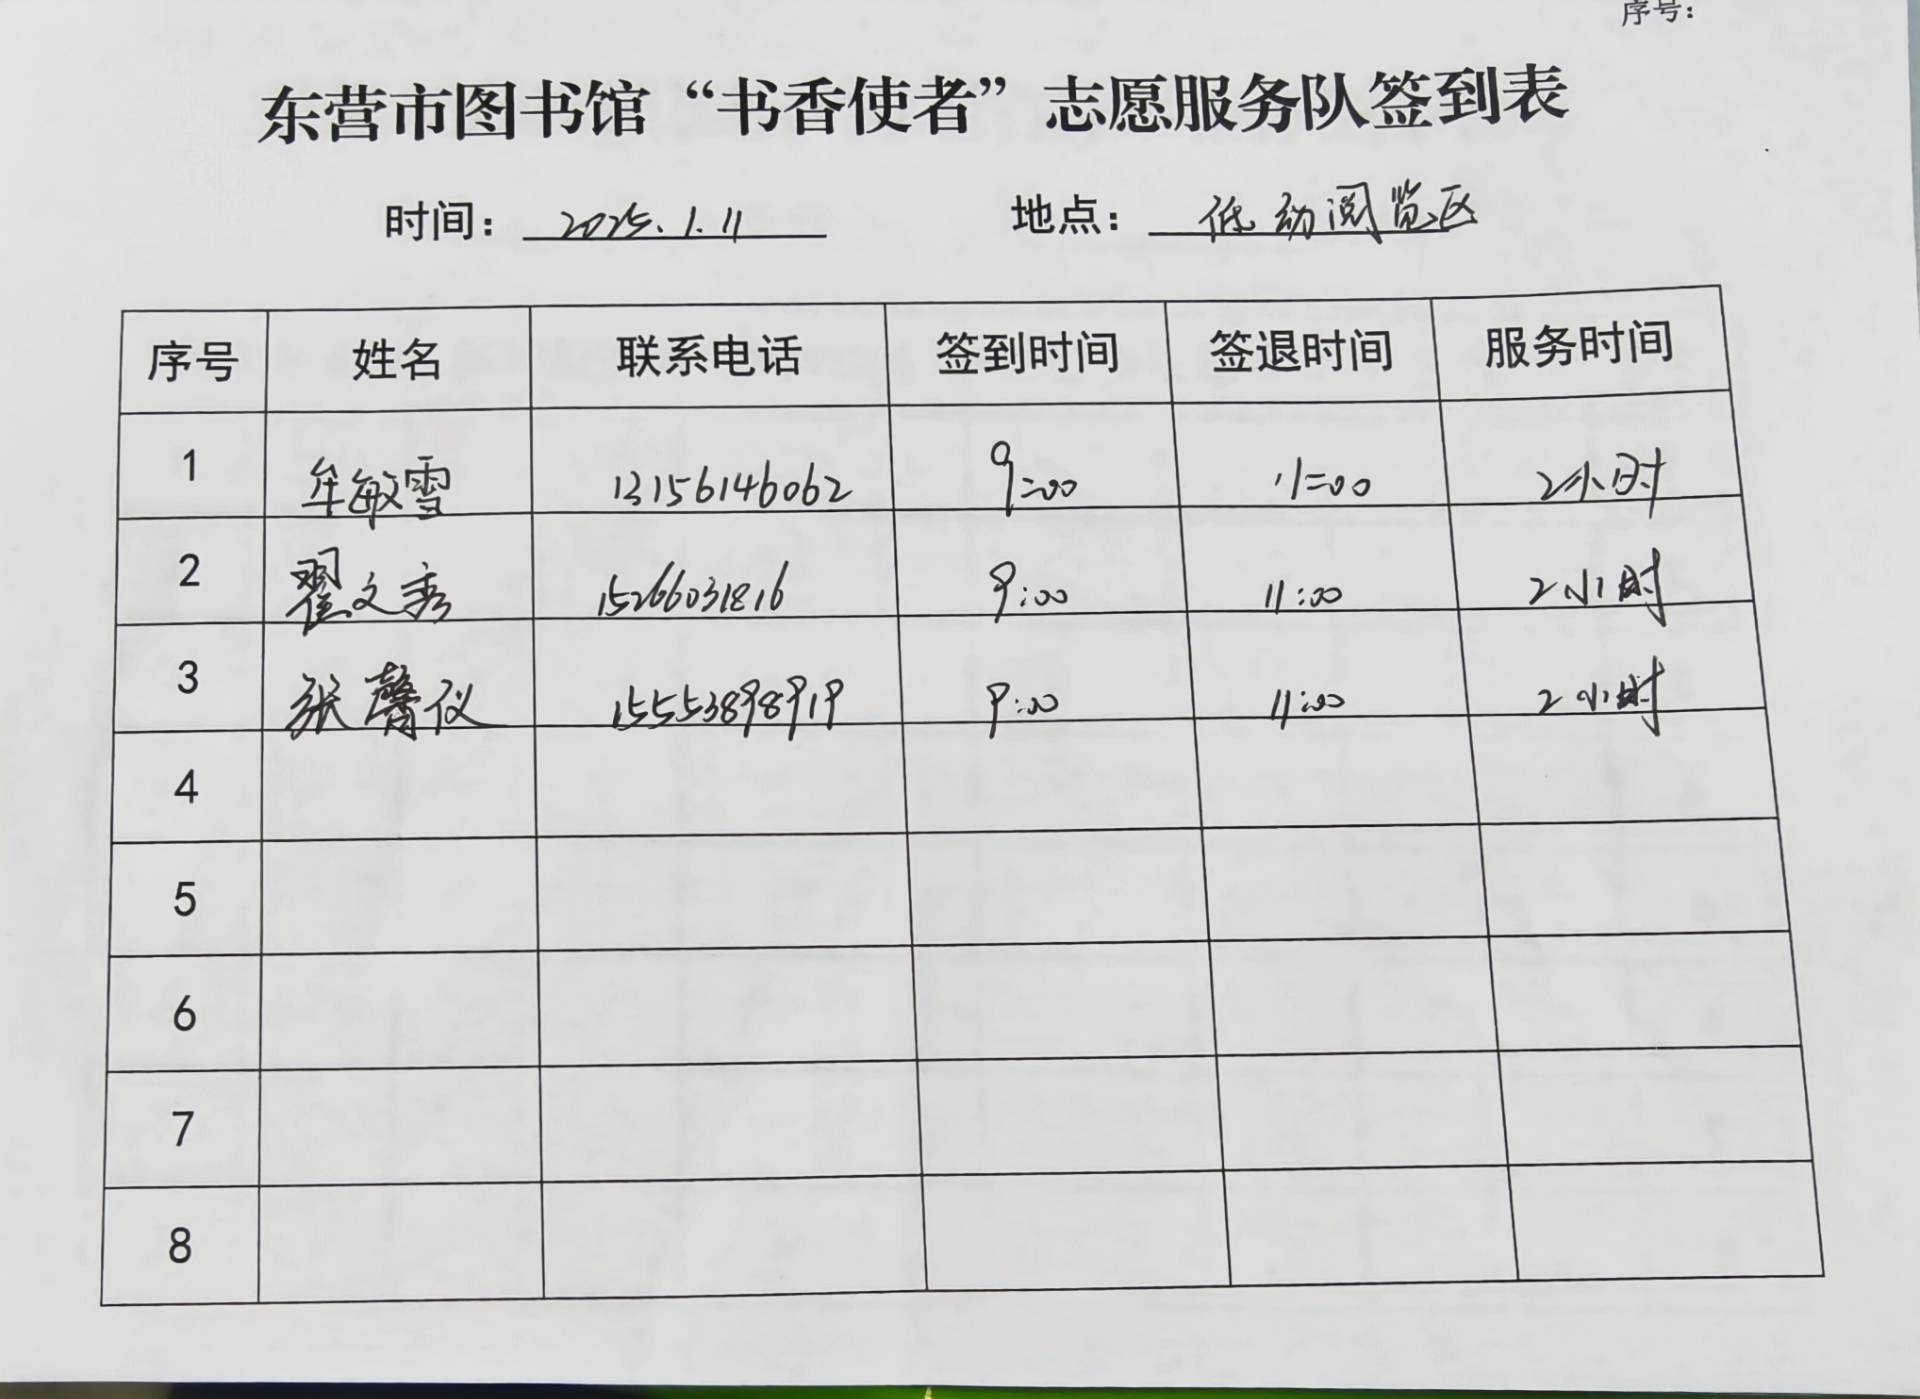 序号：
东营市图书馆“书香使者”志愿服务队签到表
时间： 2025.1.11 地点： 低幼阅览区
序号 姓名 联系电话 签到时间 签退时间 服务时间
1 牟敏雪 13156146062 9:00 11:00 2小时
2 翟文秀 15266031816 9:00 11:00 2小时
3 张馨仪 15553898919 9:00 11:00 2小时
4
5
6
7
8